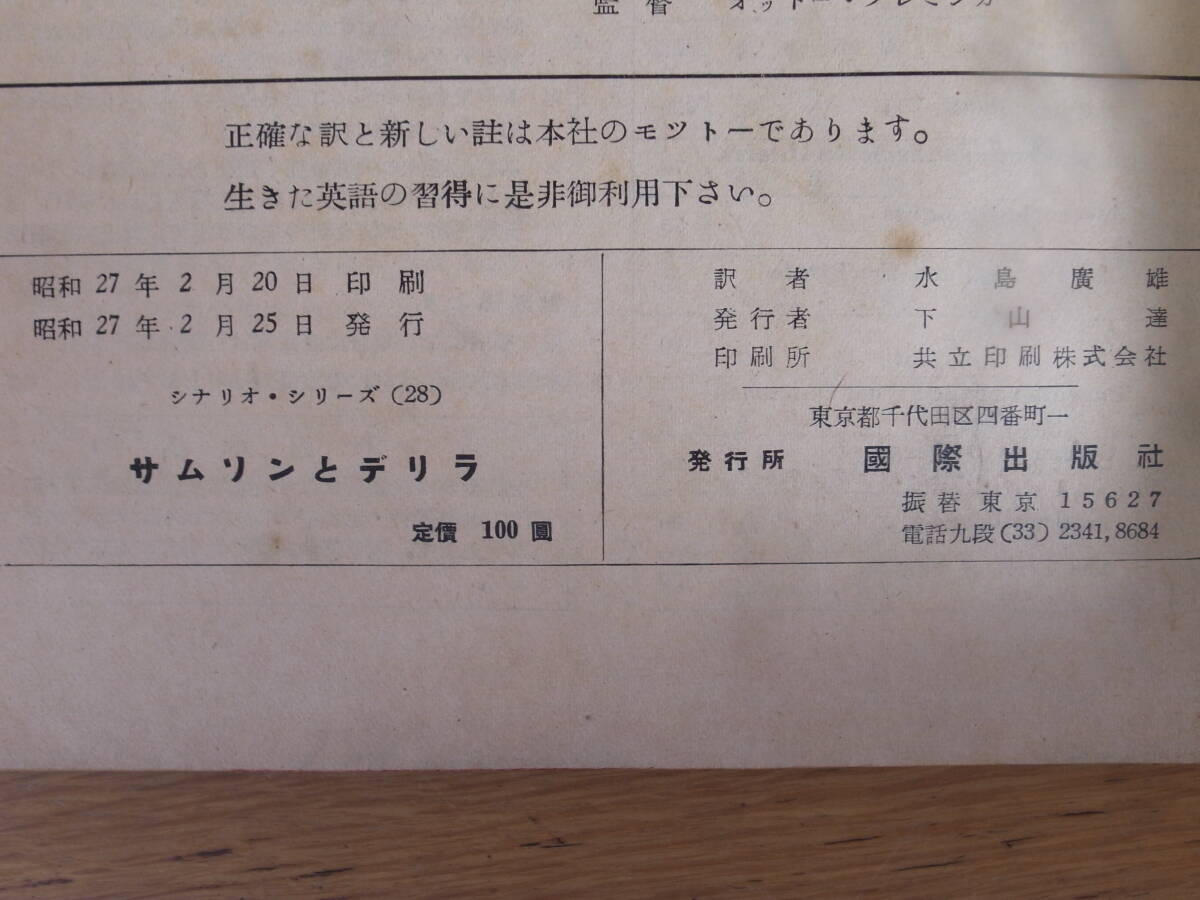 監督 オットー・プレミンガー
正確な訳と新しい註は本社のモツトーであります。
生きた英語の習得に是非御利用下さい。
昭和 27 年 2 月 20 日 印 刷
昭和 27 年 2 月 25 日 発 行
シナリオ・シリーズ (28)
サムソンとデリラ
定價 100 圓
訳 者 水 島 廣 雄
発 行 者 下 山 達
印 刷 所 共立印刷株式会社
東京都千代田区四番町一
発行所 國際出版社
振替東京 15627
電話九段 (33) 2341, 8684